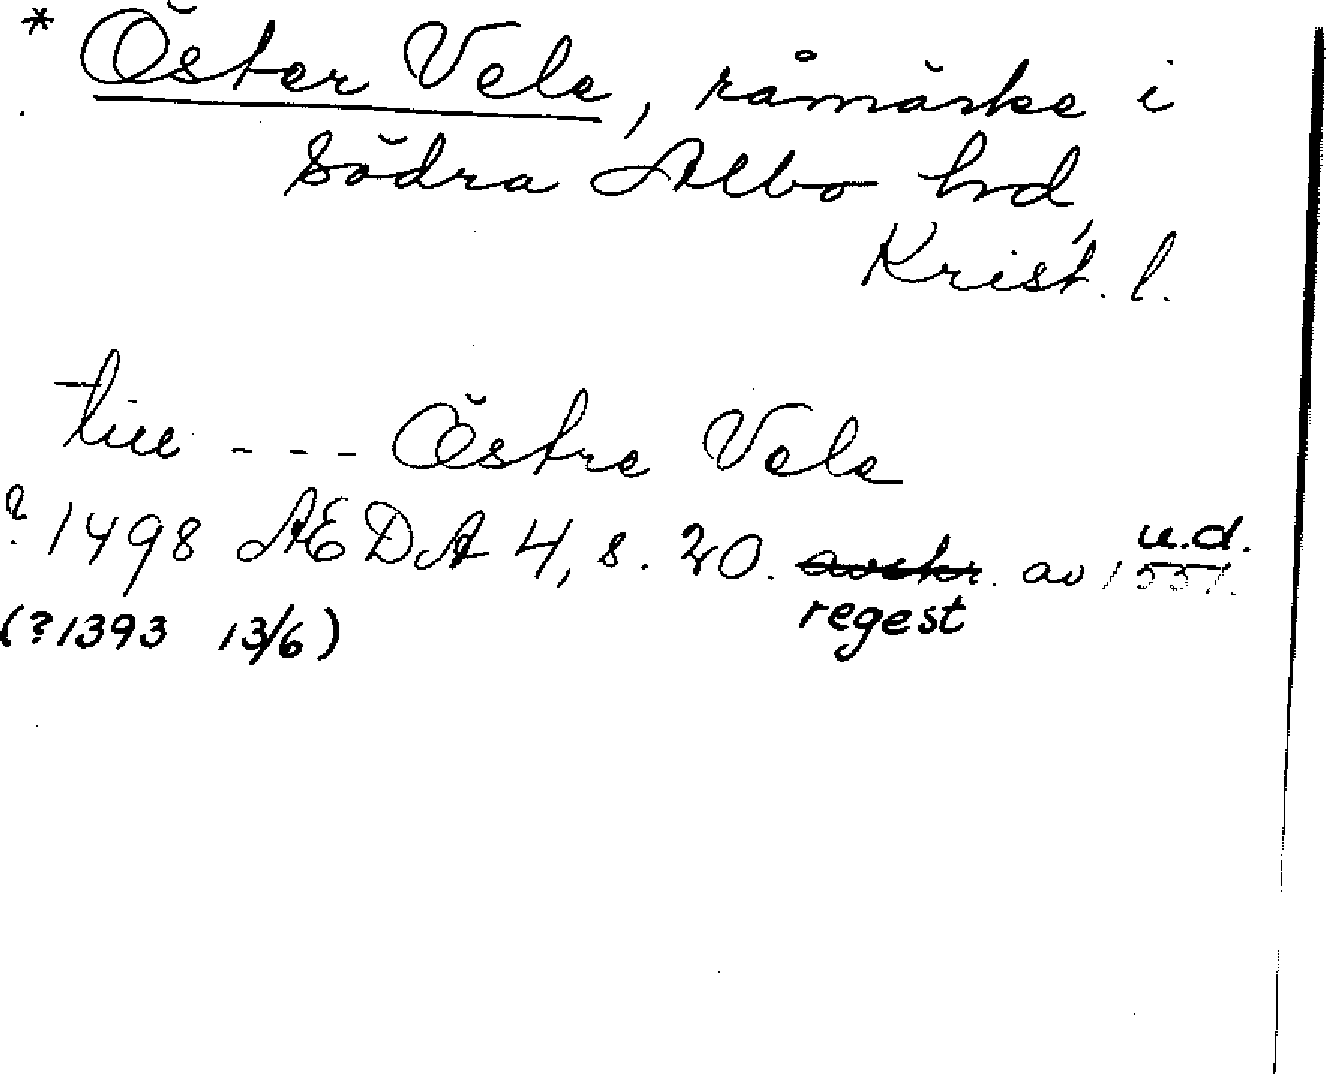 * Öster Vele, råmärke i
Södra Albo hd,
Krist. l.
till - - - Östre Vele
? 1498 ÆDA 4, s. 20. avskr. av 1551. u.d.
(?1393 13/6) regest